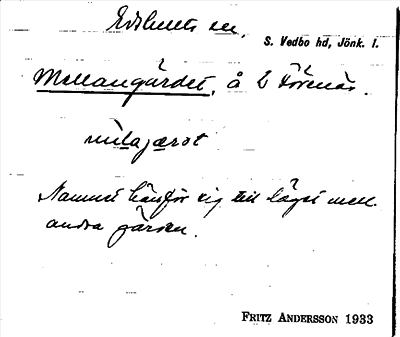 Edshults sn,
S. Vedbo hd, Jönk. l.
Mellangärdet, å L Förenäs.
milajærot
Namnet hänför sig till läget mell.
andra gärden.
FRITZ ANDERSSON 1933